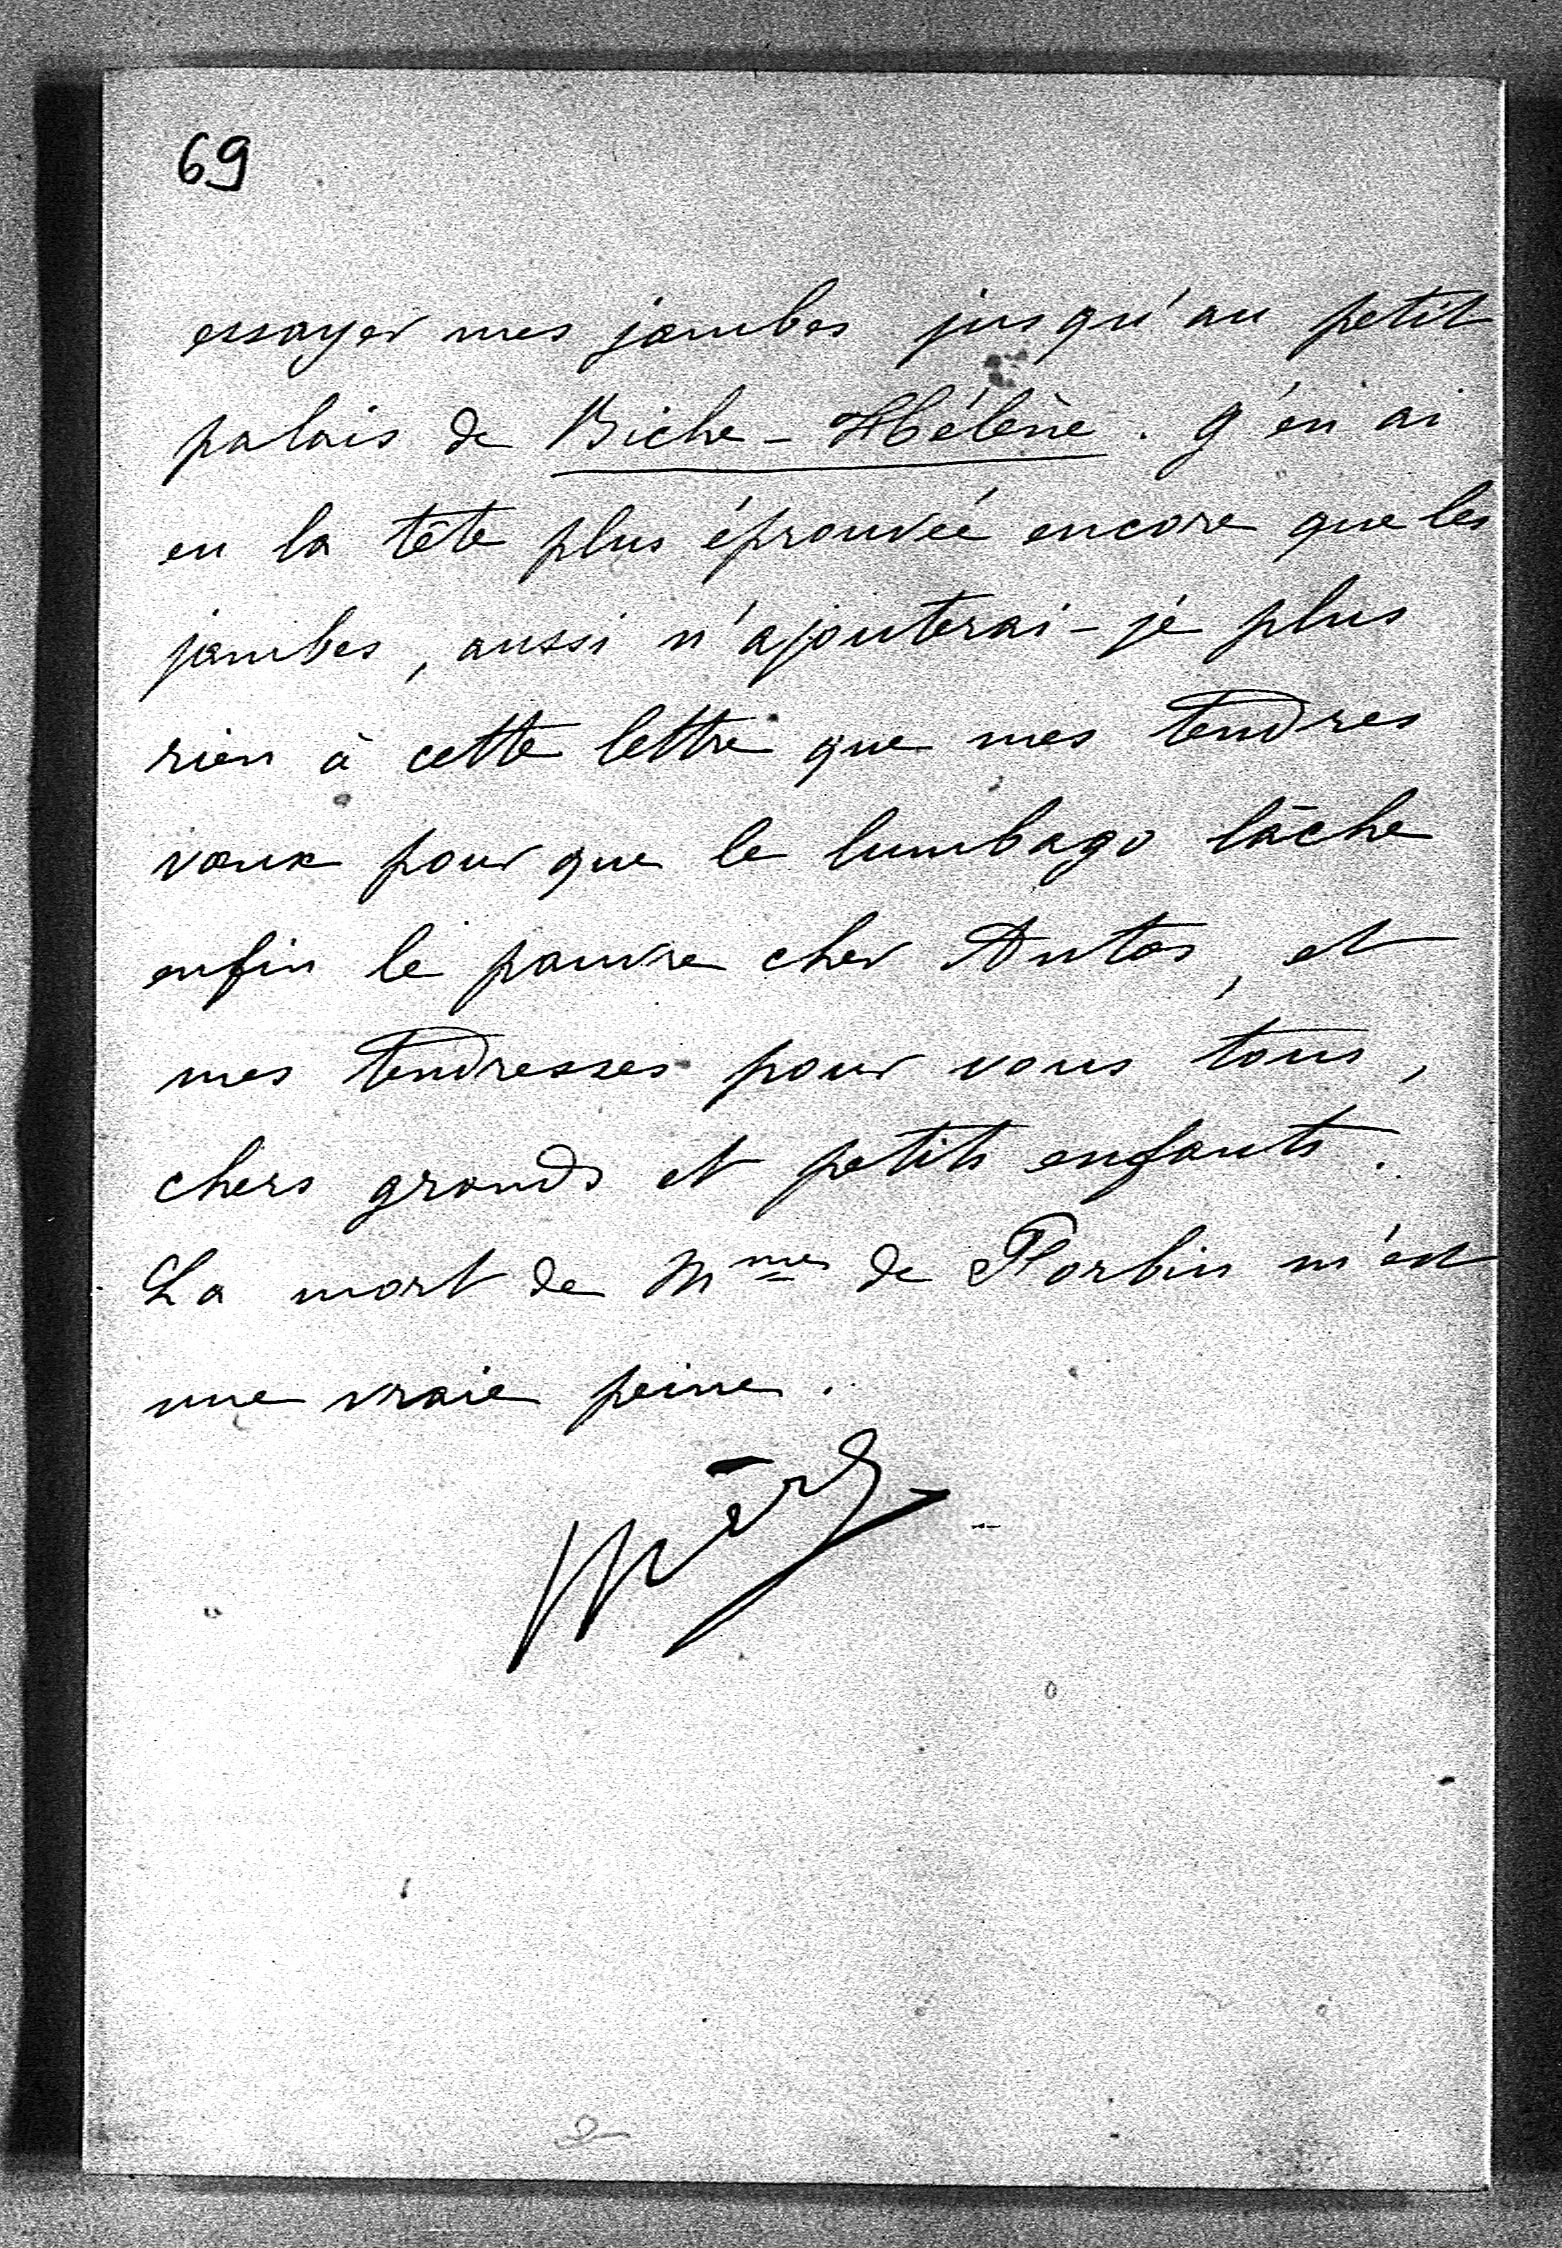 69
essayer mes jambes jusqu'au petit
palais de Biche-Hélène. J'en ai
eu la tête plus éprouvée encore que les
jambes, aussi n'ajouterai-je plus
rien à cette lettre que mes tendres
vœux pour que le lumbago lâche
enfin le pauvre cher Antos, et
mes tendresses pour vous tous,
chers grands et petits enfants.
La mort de Mme de Forbin m'est
une vraie peine.
Mère